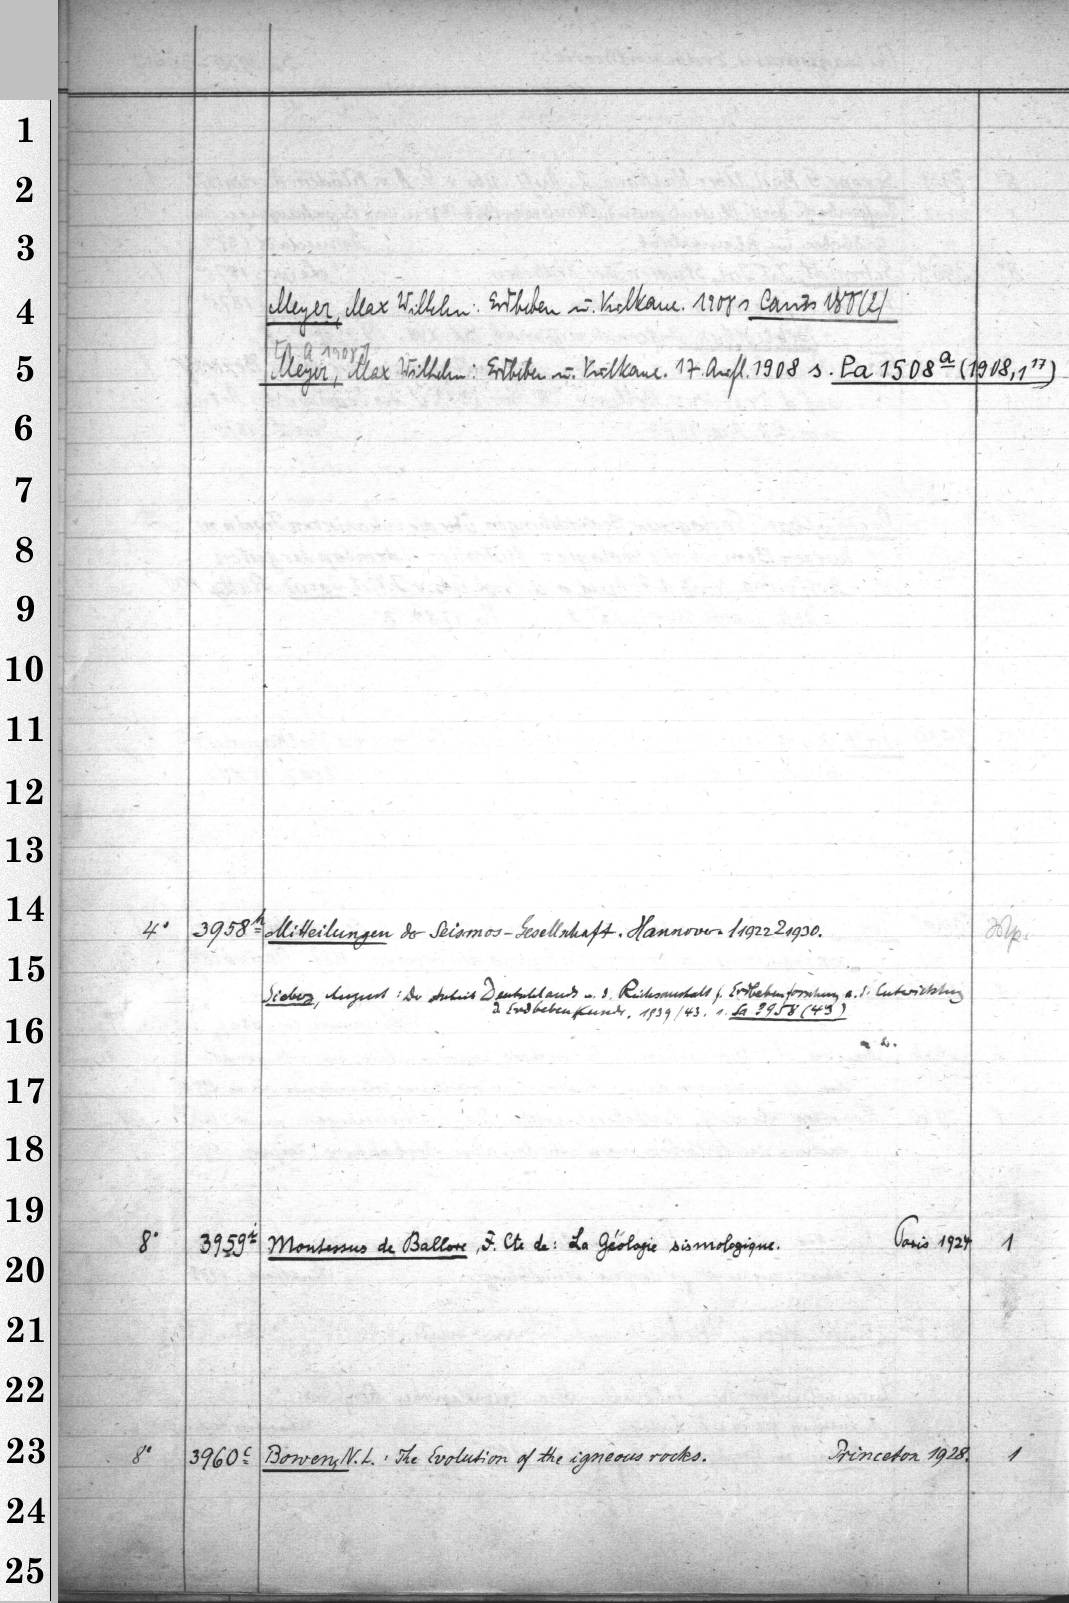 1
2
3
4
Meyer, Max Wilhelm: Erdbeben u. Vulkane. 1908 s
5
Meyer, Max Wilhelm: Erdbeben u. Vulkane. 17. Aufl. 1908 s. La 1508a (1908,117)
6
7
8
9
10
11
12
13
14
4° 3958h Mitteilungen der Seismos-Gesellschaft. Hannover 1 1922 2 1930.
15
Sieberg, August: Der Deutschlands u. d. Reichsanstalt f. Erdbebenforschung a. d. Entwicklung
d. Erdbebenkunde. 1939/43. s. La 3958 (43)
16
17
18
19
8° 3959i Montessus de Ballore, F. Cte de: La Géologie sismologique. Paris 1924 1
20
21
22
23
8° 3960c Bowen, N.L.: The Evolution of the igneous rocks. Princeton 1928. 1
24
25